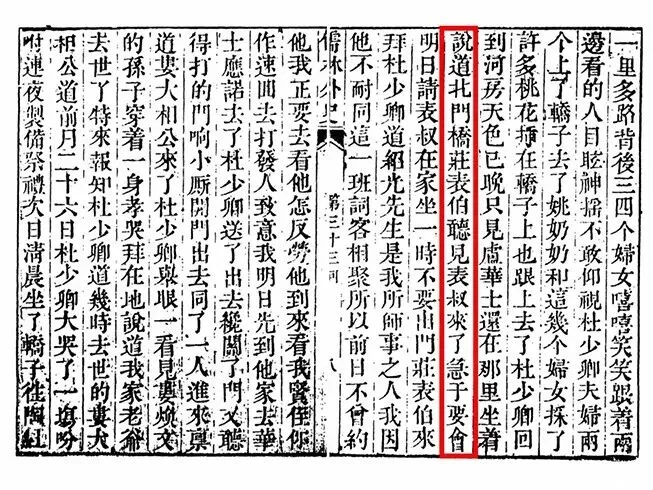 一里多路背後三四個婦女嘻嘻笑笑跟着兩
邊看的人目眩神摇不敢仰視杜少卿夫婦兩
个上了轎子去了姚奶奶和這幾个婦女採了
許多桃花插在轎子上也跟上去了杜少卿回
到河房天色已晚只見盧華士還在那里坐着
說道北門橋莊表伯聽見表叔來了急于要會
明日請表叔在家坐一時不要出門莊表伯來
拜杜少卿道紹光先生是我所師事之人我因
他不耐同這一班詞客相聚所以前日不曾約
儒林外史 第三十三回 八
他我正要去看他怎反勞他到來看我賢侄你
作速囬去打發人致意我明日先到他家去華
士應諾去了杜少卿送了出去纔關了門又聽
得打的門响小厮開門出去同了一人進來稟
道婁大相公來了杜少卿舉眼一看見婁煥文
的孫子穿着一身孝哭拜在地說道我家老爺
去世了特來報知杜少卿道幾時去世的婁大
相公道前月二十六日杜少卿大哭了一塲吩
咐連夜製備祭禮次日清晨坐了轎子往陶紅